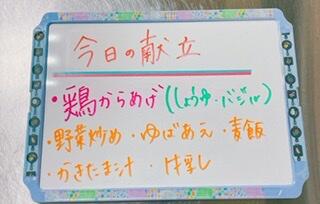 今日の献立
・鶏からあげ(しょうゆ・バジル)
・野菜炒め・ゆばあえ・麦飯
・かきたま汁・牛乳